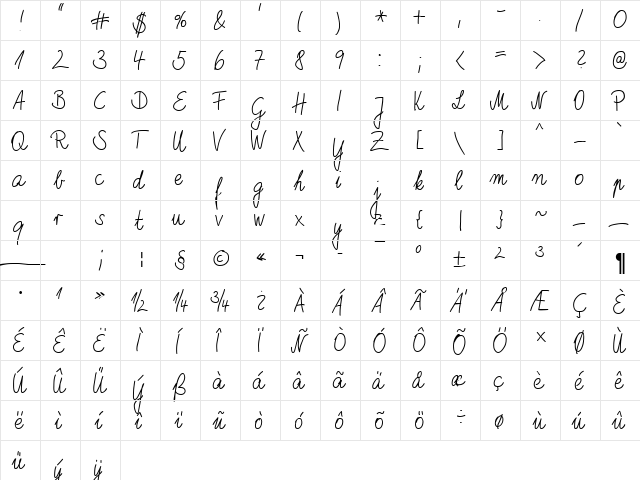 ! " # $ % & ' ( ) * + , - . / 0
1 2 3 4 5 6 7 8 9 : ; < = > ? @
A B C D E F G H I J K L M N O P
Q R S T U V W X Y Z [ \ ] ^ _ `
a b c d e f g h i j k l m n o p
q r s t u v w x y z { | } ~ – —
¡ ¦ § © « ¬ - ° ± 2 3 ´ ¶
· 1 » 1/2 1/4 3/4 ¿ À Á Â Ã Ä Å Æ Ç È
É Ê Ë Ì Í Î Ï Ñ Ò Ó Ô Õ Ö × Ø Ù
Ú Û Ü Ý ß à á â ã ä å æ ç è é ê
ë ì í î ï ñ ò ó ô õ ö ÷ ø ù ú û
ü ý ÿ